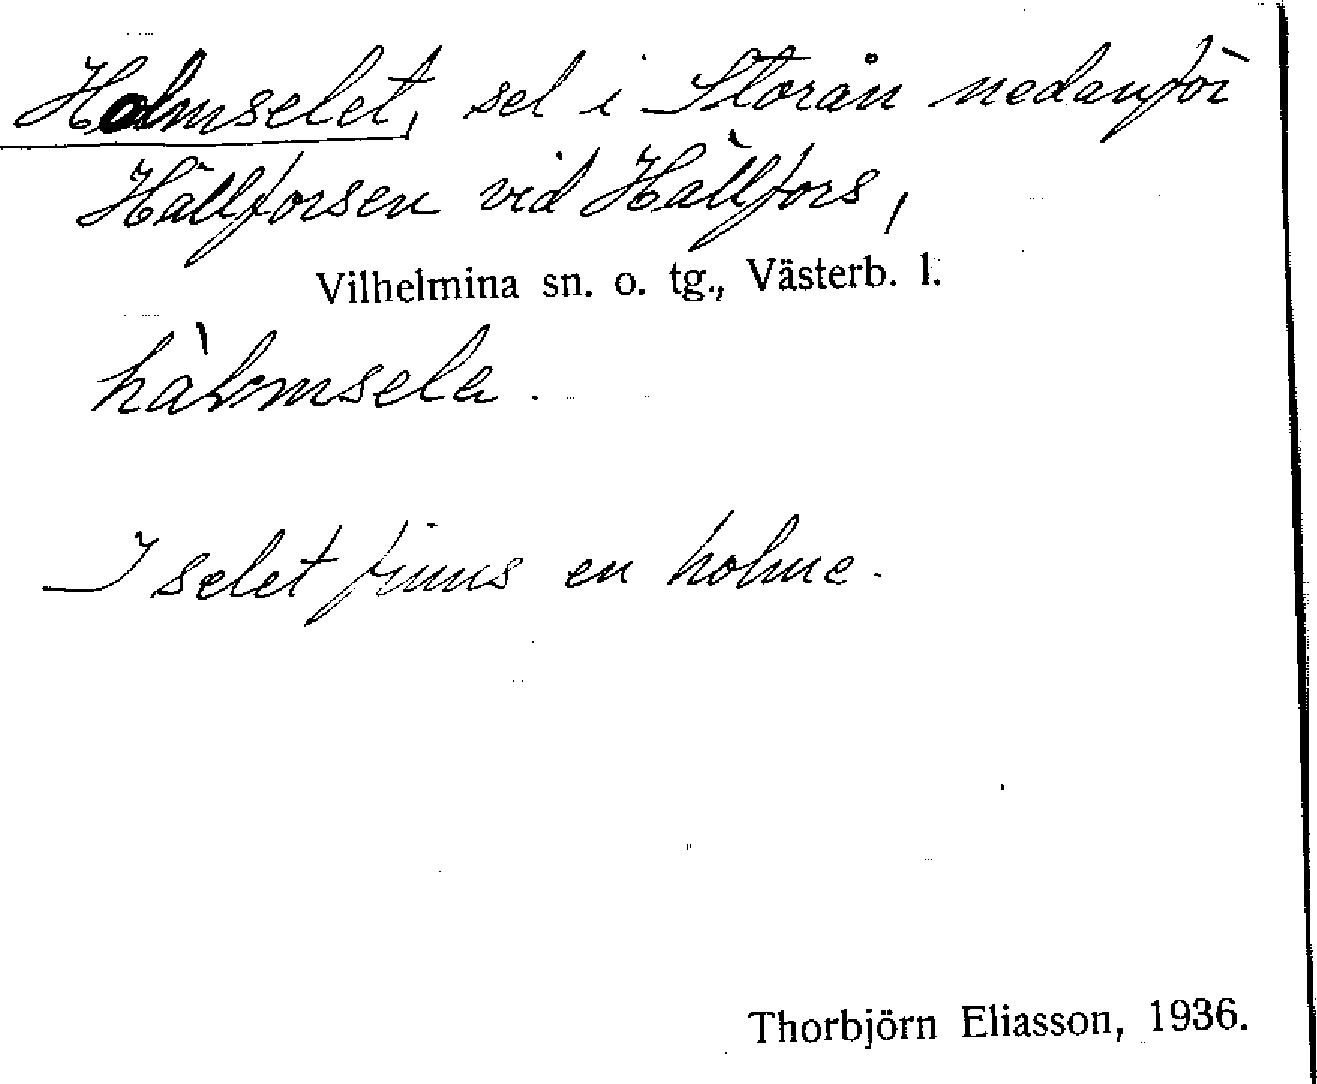 Holmselet, sel i Storån nedanför
Hällforsen vid Hällfors,
Vilhelmina sn. o. tg., Västerb. l.
I selet finns en holme.
Thorbjörn Eliasson, 1936.